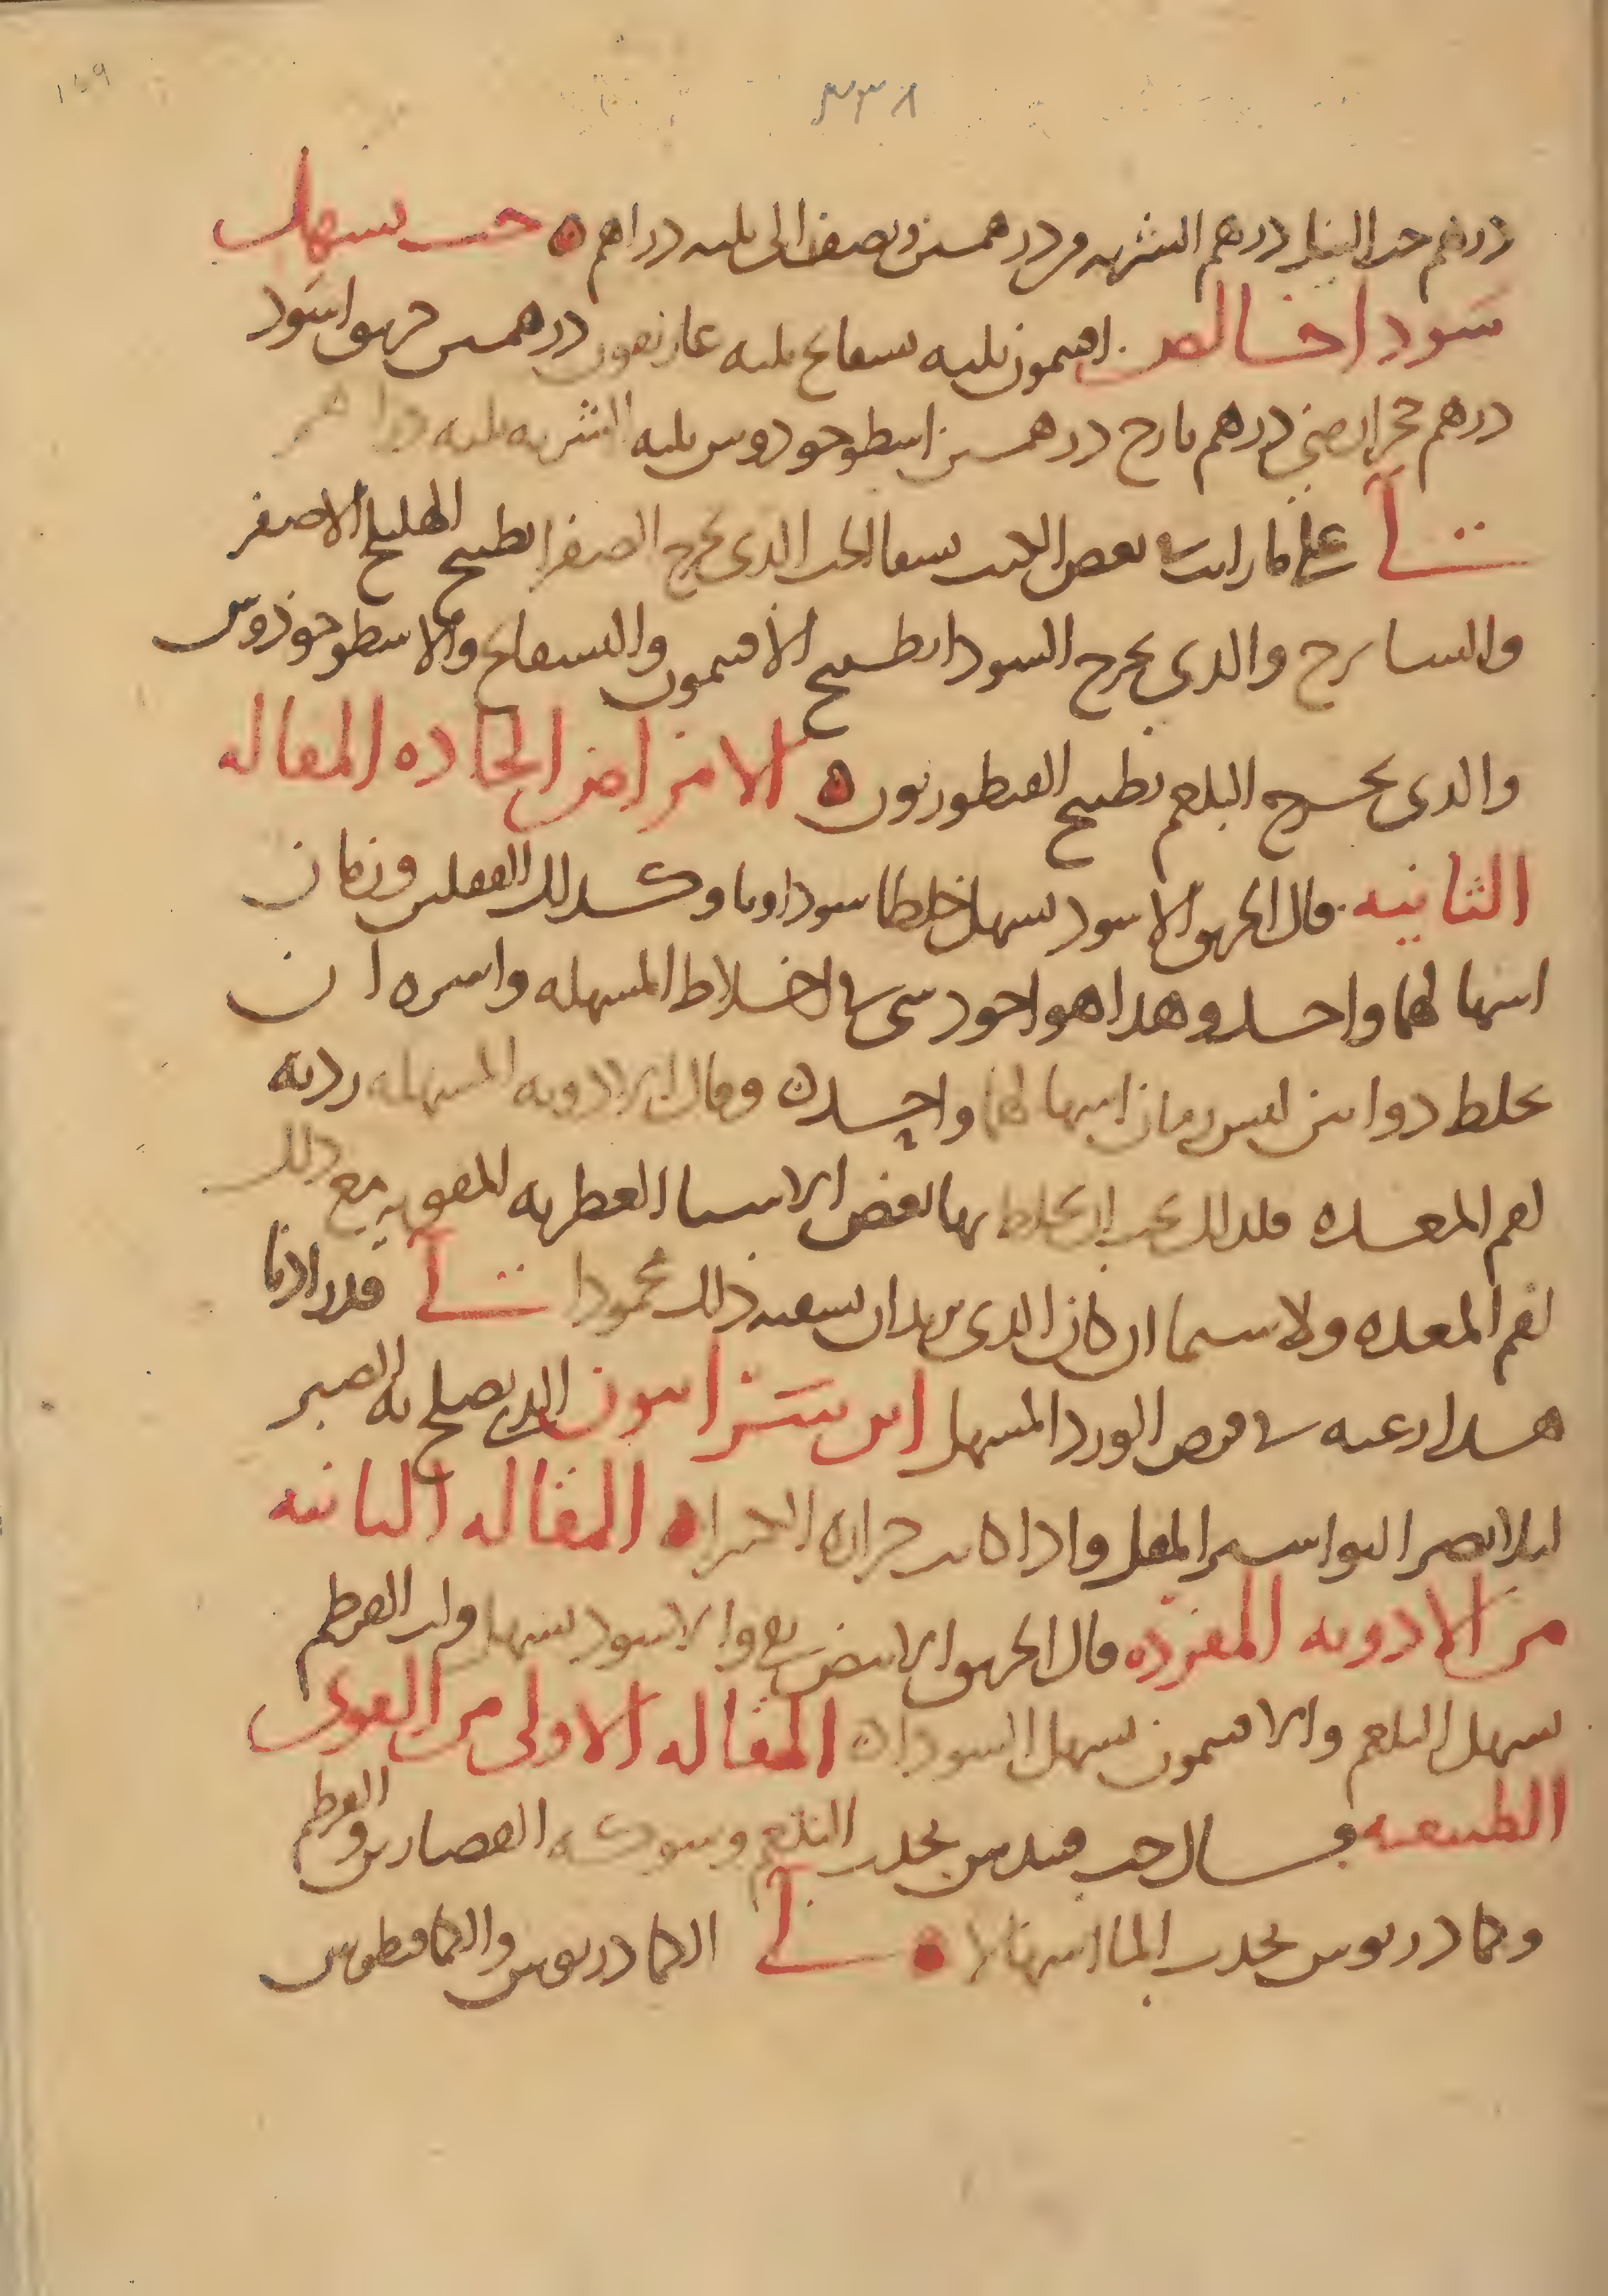 ١٦٩
٣٣٨
درهم حب النيل درهم الشربه من درهمين ونصف الى ثلثه دراهم ه حب يسهل
سودا خالص افتيمون ثلثه بسفايج ثلثه غاريقون درهمين خربق اسود
درهم حجر ارمني درهم يارج درهمين اسطوخودوس ثلثه الشربه ثلثه دراهم
لى على ما رايت في بعض الكتب يسقا الحب الذي يخرج الصفرا بطبيخ الهليلج الاصفر
والذي يخرج السودا بطبيخ الافتيمون والبسفايج والاسطوخوذوس
والذي يخرج البلغم بطبيخ القنطوريون ه الامراض الحاده المقاله
الثانيه قال الخربق الاسود يسهل خلطا سوداويا وكذلك وزمان
اسهالهما واحد وهذا هو اجود شي في اخلاط المسهله واشره ان
يخلط دوائين ليس زمان اسهالهما واحد ه وقال ان الادويه المسهله رديه
لفم المعده فلذلك يجب ان يخلط بها بعض الاشيا العطريه المقويه مع ذلك
لفم المعده ولا سيما ان كان الذي يريد ان يسقيه ذلك محمودا لى قدرادنا
هذا رعبه في قرص الورد المسهل ابن سرابيون الذي يصلح به الصبر
ليلا يضر البواسير المقل واذا كانت حراره الكثيرا ه المقاله الثانيه
من الادويه المفرده قال الخربق الابيض يقي والاسود يسهل ولب القرطم
يسهل البلغم والافتيمون يسهل السودا ه المقاله الاولى من القوى
الطبيعيه قال حب قنيدس يجذب البلغم وشوكه القصارين والقرطم
وكمادريوس يجذب الما اسهالا ه لى الكمادريوس والكمافيطوس